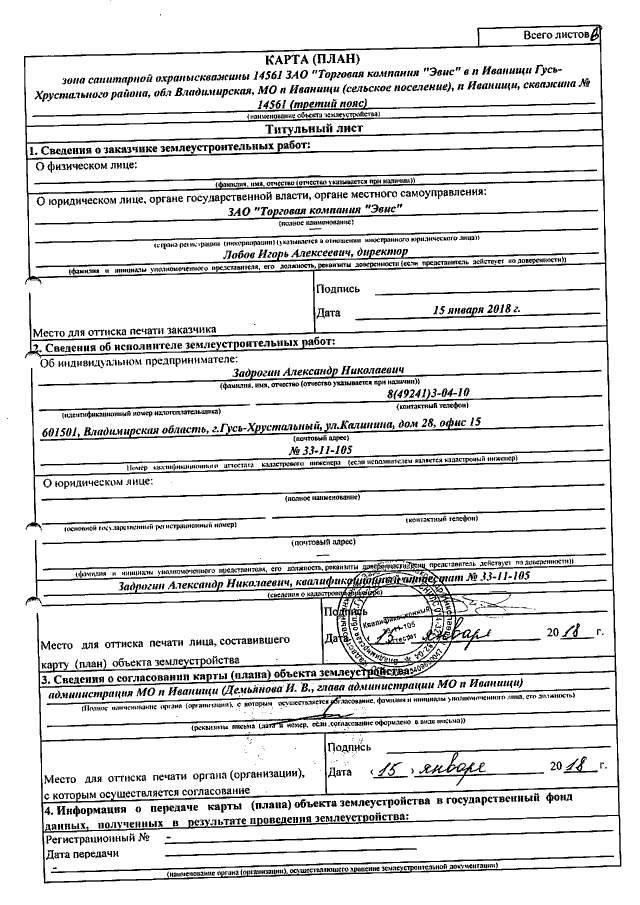 Всего листов 6
КАРТА (ПЛАН)
зона санитарной охраныскважины 14561 ЗАО "Торговая компания "Эвис" в п Иванищи Гусь-
Хрустального района, обл Владимирская, МО п Иванищи (сельское поселение), п Иванищи, скважина №
14561 (третий пояс)
(наименование объекта землеустройства)
Титульный лист
1. Сведения о заказчике землеустроительных работ:
О физическом лице:
(фамилия, имя, отчество (отчество указывается при наличии))
О юридическом лице, органе государственной власти, органе местного самоуправления:
ЗАО "Торговая компания "Эвис"
(полное наименование)
—
(страна регистрации (инкорпорации) (указывается в отношении иностранного юридического лица))
Лобов Игорь Алексеевич, директор
(фамилия и инициалы уполномоченного представителя, его должность, реквизиты доверенности (если представитель действует по доверенности))
Подпись
Дата 15 января 2018 г.
Место для оттиска печати заказчика
2. Сведения об исполнителе землеустроительных работ:
Об индивидуальном предпринимателе:
Задрогин Александр Николаевич
(фамилия, имя, отчество (отчество указывается при наличии))
8(49241)3-04-10
(идентификационный номер налогоплательщика) (контактный телефон)
601501, Владимирская область, г.Гусь-Хрустальный, ул.Калинина, дом 28, офис 15
(почтовый адрес)
№ 33-11-105
Номер квалификационного аттестата кадастрового инженера (если исполнителем является кадастровый инженер)
О юридическом лице:
(полное наименование)
(основной государственный регистрационный номер) (контактный телефон)
(почтовый адрес)
—
(фамилия и инициалы уполномоченного представителя, его должность, реквизиты доверенности (если представитель действует по доверенности))
Задрогин Александр Николаевич, квалификационный аттестат № 33-11-105
(сведения о кадастровом инженере)
Подпись
Место для оттиска печати лица, составившего
Дата "15" января 2018 г.
карту (план) объекта землеустройства
Квалификационный
аттестат
3. Сведения о согласовании карты (плана) объекта землеустройства
администрация МО п Иванищи (Демьянова И. В., глава администрации МО п Иванищи)
(Полное наименование органа (организации), с которым осуществляется согласование, фамилия и инициалы уполномоченного лица, его должность)
(реквизиты письма (дата и номер, если согласование оформлено в виде письма))
Подпись
Место для оттиска печати органа (организации),
Дата "15" января 2018 г.
с которым осуществляется согласование
4. Информация о передаче карты (плана) объекта землеустройства в государственный фонд
данных, полученных в результате проведения землеустройства:
Регистрационный № -
Дата передачи
-
(наименование органа (организации), осуществляющего хранение землеустроительной документации)